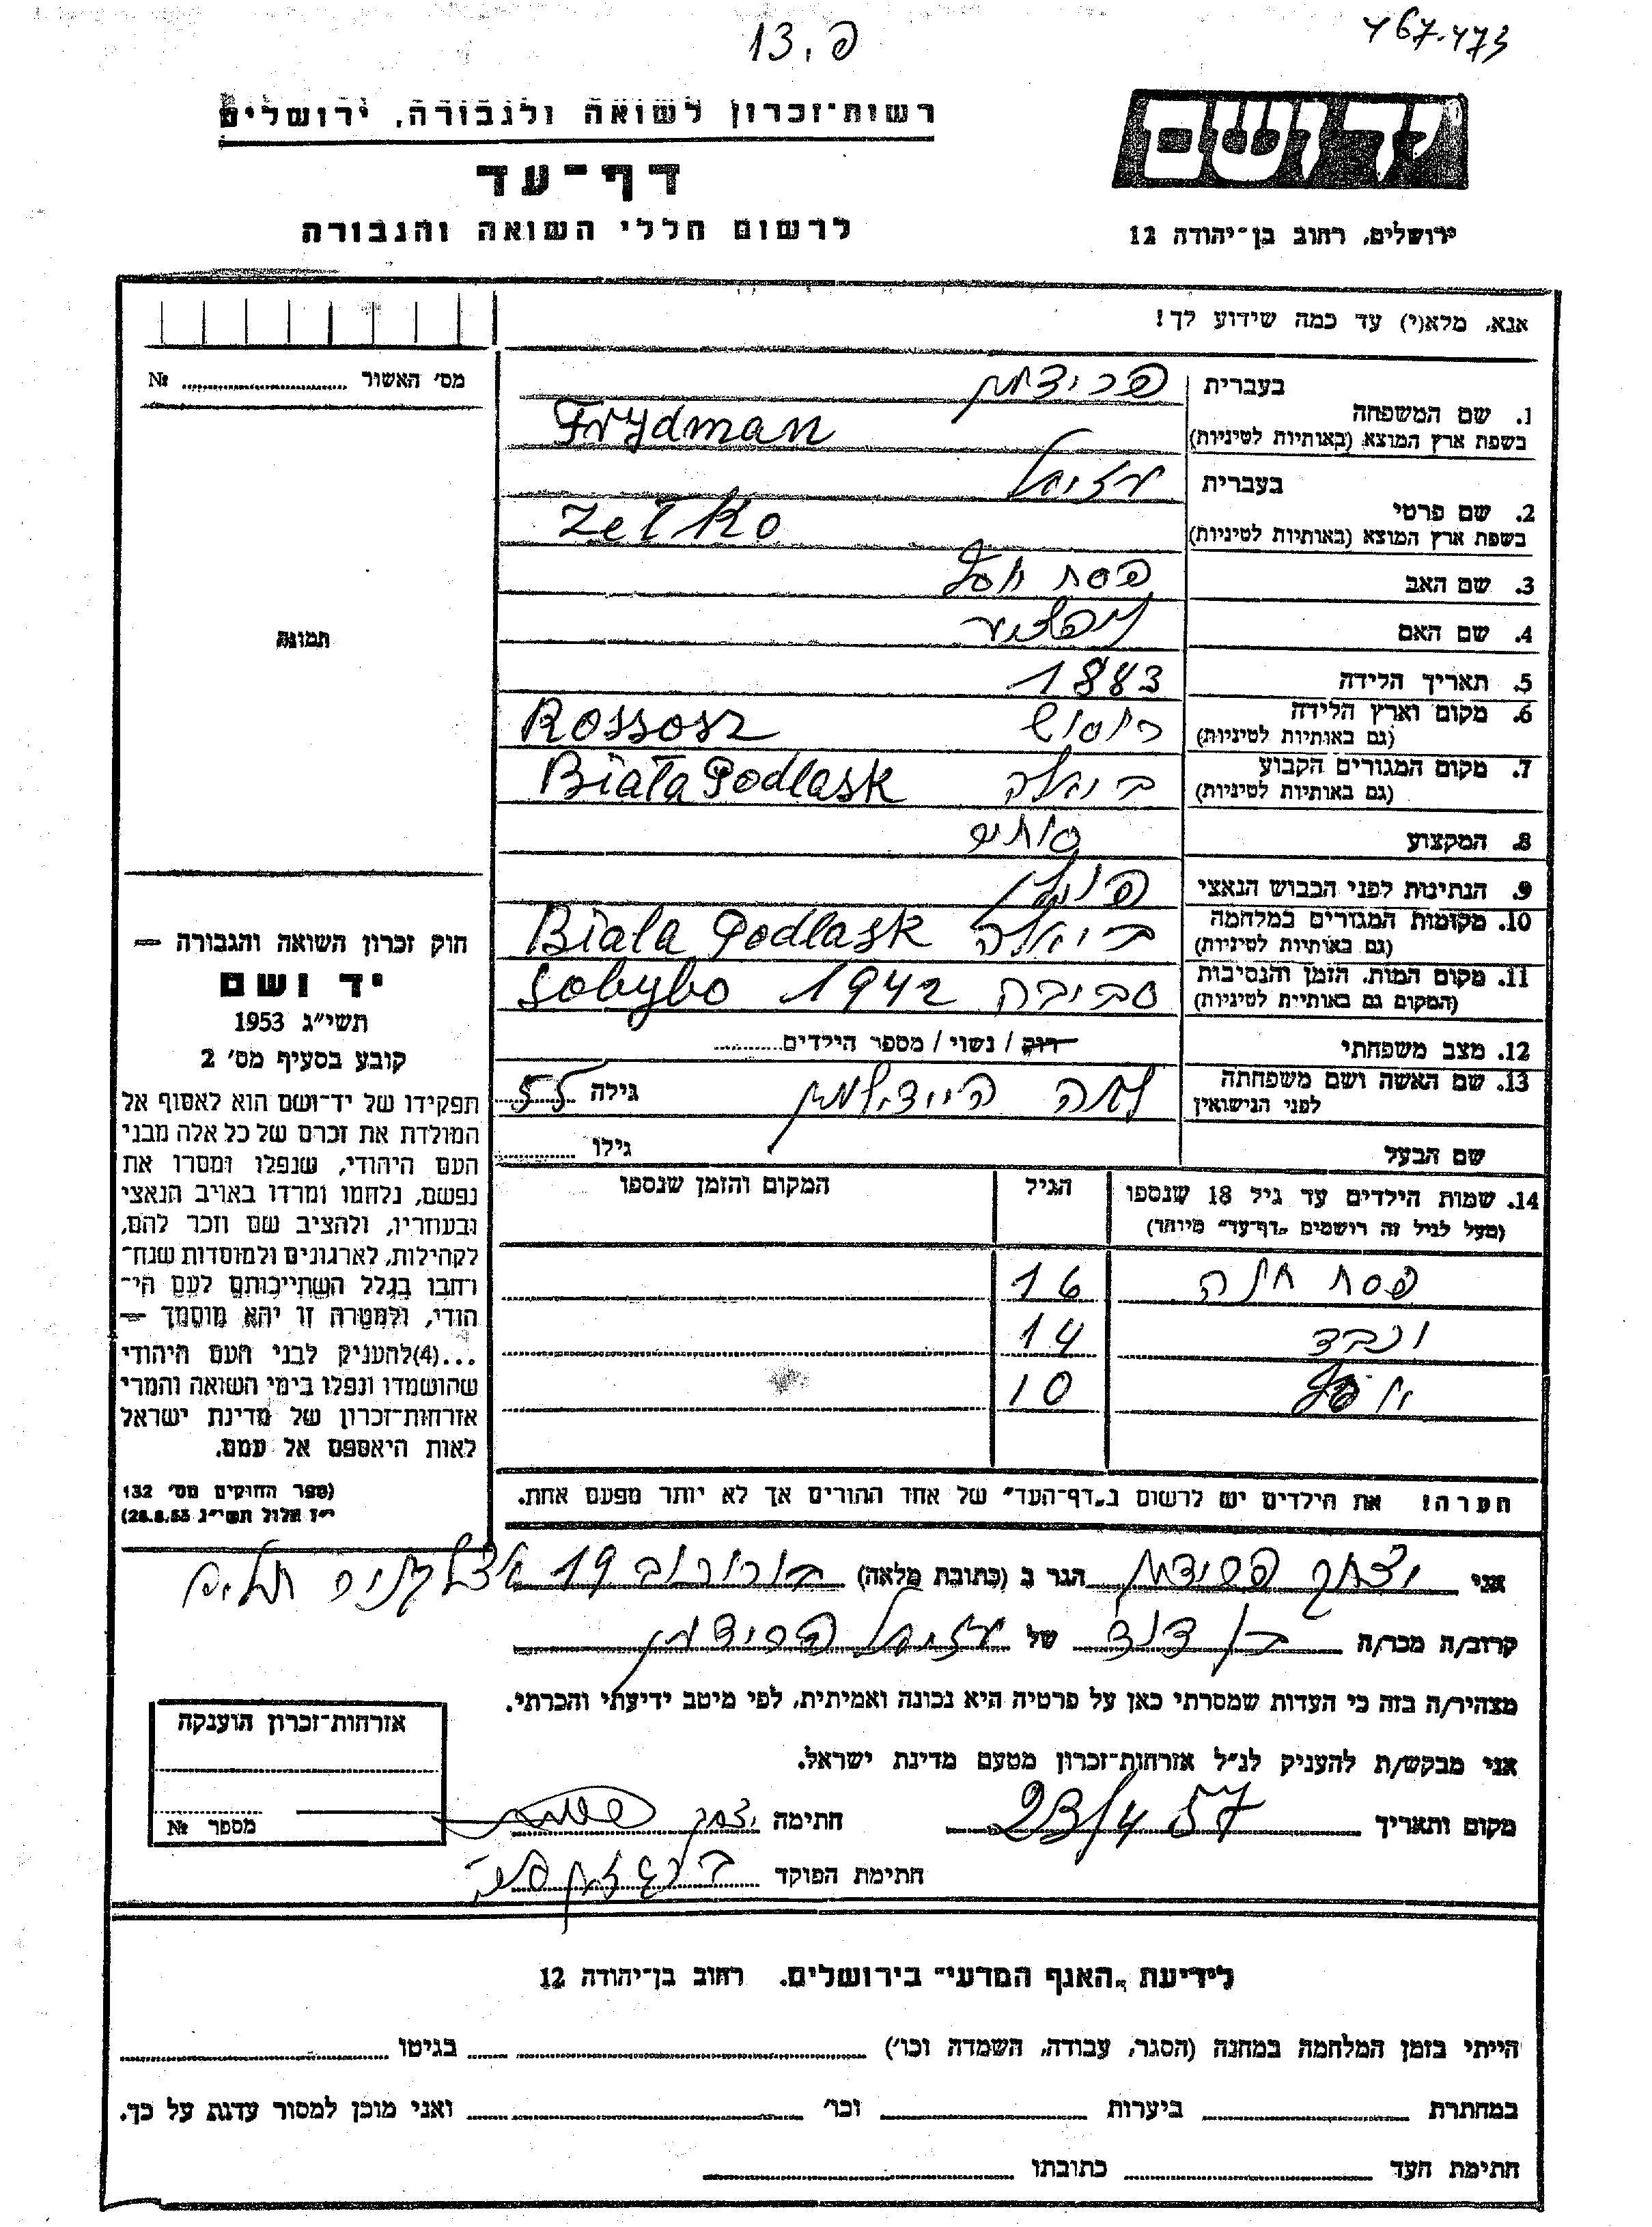 פ. 13
467.473
רשות־זכרון לשואה ולגבורה, ירושלים
דף־עד
לרשום חללי השואה והגבורה
ידושם
ירושלים, רחוב בן־יהודה 12
אנא, מלא(י) עד כמה שידוע לך!
מס׳ האשור № 
1. שם המשפחה בעברית פרידמן
בשפת ארץ המוצא (באותיות לטיניות) Frydman
2. שם פרטי בעברית עזיאל
בשפת ארץ המוצא (באותיות לטיניות)
3. שם האב פסח יוסף
4. שם האם
5. תאריך הלידה 1883
6. מקום וארץ הלידה (גם באותיות לטיניות) רוסוש Rossosz
7. מקום המגורים הקבוע (גם באותיות לטיניות) ביאלה Biała Podlask
8. המקצוע סוחר
9. הנתינות לפני הכבוש הנאצי פולין
10. מקומות המגורים במלחמה (גם באותיות לטיניות) ביאלה Biala Podlask
11. מקום המות, הזמן והנסיבות (המקום גם באותיות לטיניות) סביבה 1942 Sobybo
12. מצב משפחתי רוק / נשוי / מספר הילדים
13. שם האשה ושם משפחתה לפני הנישואין גילה 55
שם הבעל גילו
14. שמות הילדים עד גיל 18 שנספו הגיל המקום והזמן שנספו
(מעל לגיל זה רושמים „דף־עד״ מיוחד)
פסח חנה 16
14
יוסף 10
הערה! את הילדים יש לרשום ב„דף־העד״ של אחד ההורים אך לא יותר מפעם אחת.
תמונה
חוק זכרון השואה והגבורה —
יד ושם
תשי״ג 1953
קובע בסעיף מס׳ 2
תפקידו של יד־ושם הוא לאסוף אל
המולדת את זכרם של כל אלה מבני
העם היהודי, שנפלו ומסרו את
נפשם, נלחמו ומרדו באויב הנאצי
ובעוזריו, ולהציב שם וזכר להם,
לקהילות, לארגונים ולמוסדות שנח־
רחבו בגלל השתייכותם לעם הי־
הודי, ולמטרה זו יהא מוסמך —
...(4)להעניק לבני העם היהודי
שהושמדו ונפלו בימי השואה והמרי
אזרחות־זכרון של מדינת ישראל
לאות היאספם אל עמם.
(ספר החוקים מס׳ 132
י״ז אלול תשי״ג 28.8.53)
אני יצחק פרידמן הגר ב (כתובת מלאה) בורוכוב 19
קרוב/ה מכר/ה בן דוד של עזיאל פרידמן
מצהיר/ה בזה כי העדות שמסרתי כאן על פרטיה היא נכונה ואמיתית, לפי מיטב ידיעתי והכרתי.
אני מבקש/ת להעניק לנ״ל אזרחות־זכרון מטעם מדינת ישראל.
מקום ותאריך 23/4 57 חתימה יצחק
חתימת הפוקד
אזרחות־זכרון הוענקה
מספר №
לידיעת „האגף המדעי״ בירושלים. רחוב בן־יהודה 12
הייתי בזמן המלחמה במחנה (הסגר, עבודה, השמדה וכו׳) בגיטו
במחתרת ביערות וכו׳ ואני מוכן למסור עדות על כך.
חתימת העד כתובתו